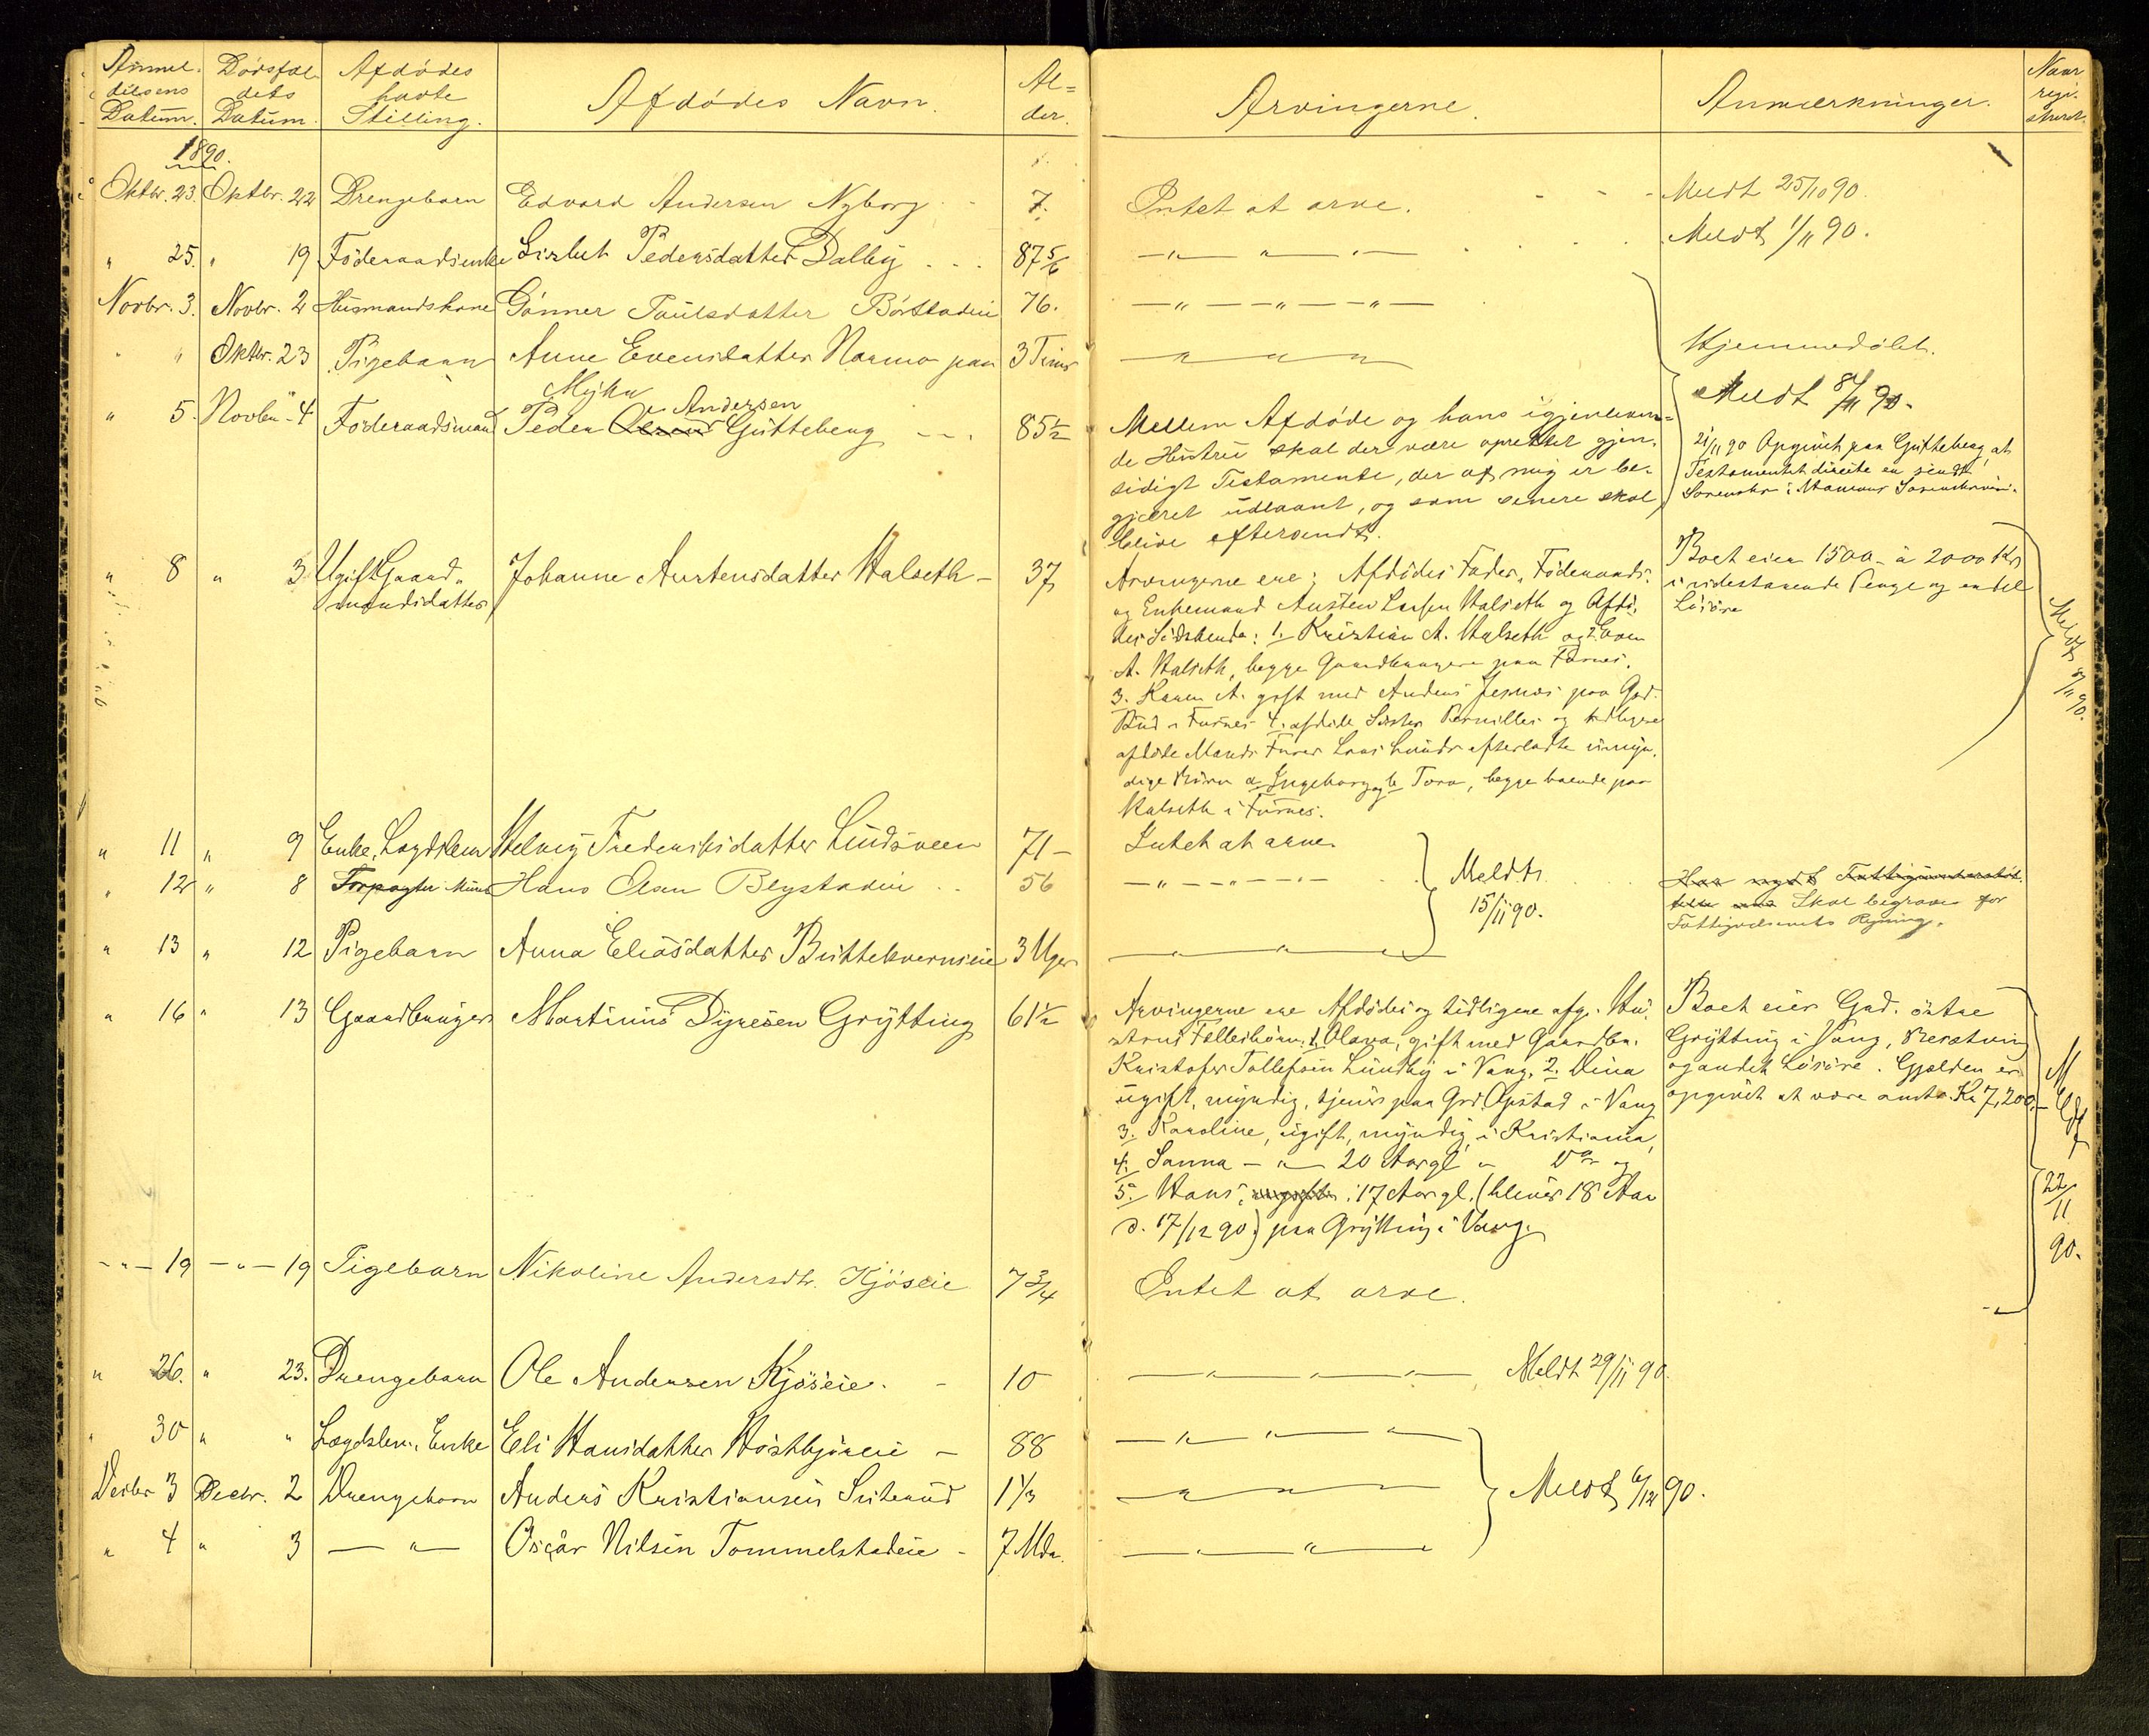 Anmel- Dödsfal- Afdödes
delsens dets havte Afdödes Navn. Al- Arvingerne. Anmærkninger. Naar
Datum. Datum. Stilling. der. regi-
streret.
1890.
Oktbr. 23. Oktbr. 22 Drengebarn Edvard Andersen Nyborg - 7. Intet at arve. - - - Meldt 25/10 90.
" 25. " 19 Föderaadsenke Lisbet Pedersdatter Dalby . . . 87 5/6 — " — " — " — Meldt 1/11 90.
Novbr. 3. Novbr. 2 Husmandskone Gönner Paulsdatter Börstadeie 76. — " — " — " —
" " Oktbr. 23 Pigebarn Anne Evensdatter Narmo paa 3 Timer — " — " — " — Hjemmedöbt.
Myhu Meldt 8/11 90.
" 5. Novbr. 4 Föderaadsmand Peder Olsen Andersen Gutteberg - - . 85 1/2 Mellem Afdöde og hans igjenleven-
de Hustru skal der være oprettet gjen-
sidigt Testamente, der af mig er be-
gjæret udlaant, og som senere skal
blive eftersendt.
21/11 90 Opgivet paa Gutteberg, at
Testamentet direkte er sendt
Sorenskr. i
" 8 " 3 Ugift Gaard-
mandsdatter Johanne Austensdatter Halseth - 37 Arvingerne ere: Afdödes Fader, Föderaads-
og Enkemand Austen Larsen Halseth og Afdö-
des Södskende: 1. Kristian A. Halseth og 2. Even
A. Halseth, begge Gaardbrugere paa Furnes.
3. Karen A. gift med Anders Jesnes paa Gad.
i Furnes 4. afdöde Söster Pernilles og tidligere
afdöde Mands Lars Lunds efterladte umyn-
dige Börn a. Ingeborg og b. Tora, begge boende paa
Halseth i Furnes.
Boet eier 1500 - à 2000 Kr.
i udestaaende Penge og endel
Lösöre
Meldt 8/11 90.
" 11 " 9 Enke, Lægdslem Helvig Frederiksdatter Lundsveen 71 - Intet at arve.
" 12 " 8 Forpagter Hans Olsen Bleystadeie . . 56 — " — " — " — Meldt
15/11 90.
Har nydt Fattigunderstöt-
telse Skal begraves for
Fattigvæsenets Regning.
" 13 " 12 Pigebarn Anna Eliasdatter Buttekverneie 3 Uger — " — " — " —
" 16 " 13 Gaardbruger Martinus Dyresen Grytting 61 1/2 Arvingerne ere Afdödes og tidligere afg. Hu-
strus Fællesbörn: 1. Olava, gift med Gaardbr.
Kristofer Tollefsen Lundby i Vang, 2. Dina
ugift, myndig, tjener paa Grd. Opstad i Vang
3. Karoline, ugift, myndig, i Kristiania,
4. Sanna — " — 20 Aar gl. " Do og
5. Hans, 17 Aar gl. (bliver 18 Aar
d. 17/12 90) paa Grytting i Vang.
Boet eier Grd. östre
Grytting i Vang, Besætning
og andet Lösöre. Gjælden er
opgivet at være omtr. Kr. 7,200.-
Meldt
22/11
90.
- " - 19 - " - 19 Pigebarn Nikoline Andersdtr. Kjöseie 7 3/4 Intet at arve.
" 26. " 23. Drengebarn Ole Andersen Kjöseie. - 10 — " — " — " — Meldt 29/11 90.
" 30 " " Lægdslem, Enke Eli Hansdatter Höstbjöreie - 88 — " — " — " —
Decbr 3 Decbr. 2 Drengebarn Anders Kristiansen Suterud 1 1/3 — " — " — " — Meldt 6/12 90.
" 4 " 3 — " — Oscar Nilsen Tommelstadeie - 7 Mdr. — " — " — " —